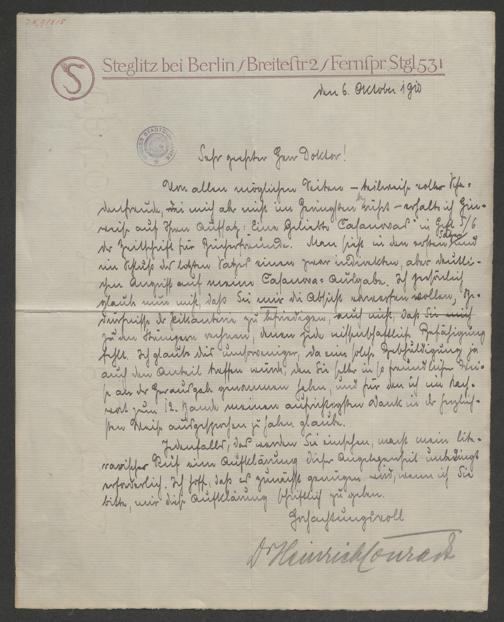 Steglitz bei Berlin / Breitestr 2 / Fernspr. Stgl. 531
den 6. Oktober 1910
Sehr geehrter Herr Doktor!
Von allen möglichen Seiten – teilweise voller Scha-
denfreude, die mich aber nicht im Geringsten rührt – erhalte ich Hin-
weise auf Ihren Aufsatz: „Eine Geliebte Casanovas" in Heft 5/6
der Zeitschrift für Bücherfreunde. Man sieht in den ersten und
im Schluss des letzten Satzes einen zwar indirekten, aber deutli-
chen Angriff auf meine Casanova-Ausgabe. Ich persönlich
glaube nun nicht, daß Sie mir die Absicht vorwerfen wollen, Be-
dürfnisse der zu befriedigen, auch nicht, daß Sie mich
zu den rechnen, denen jede wissenschaftliche Befähigung
fehlt. Ich glaube dies umsoweniger, da eine solche Beschuldigung ja
auch den Anteil treffen würde, den Sie selber in so freundlicher Wei-
se an der Herausgabe genommen haben, und für den ich im Nach-
wort zum 12. Bande meinen aufrichtigsten Dank in der herzlich-
sten Weise ausgesprochen zu haben glaube.
Jedenfalls, das werden Sie einsehen, macht mein lite-
rarischer Ruf eine Aufklärung dieser Angelegenheit unbedingt
erforderlich. Ich hoffe, daß es zunächst genügen wird, wenn ich Sie
bitte, mir diese Aufklärung schriftlich zu geben.
Hochachtungsvoll
Dr Heinrich Conrad